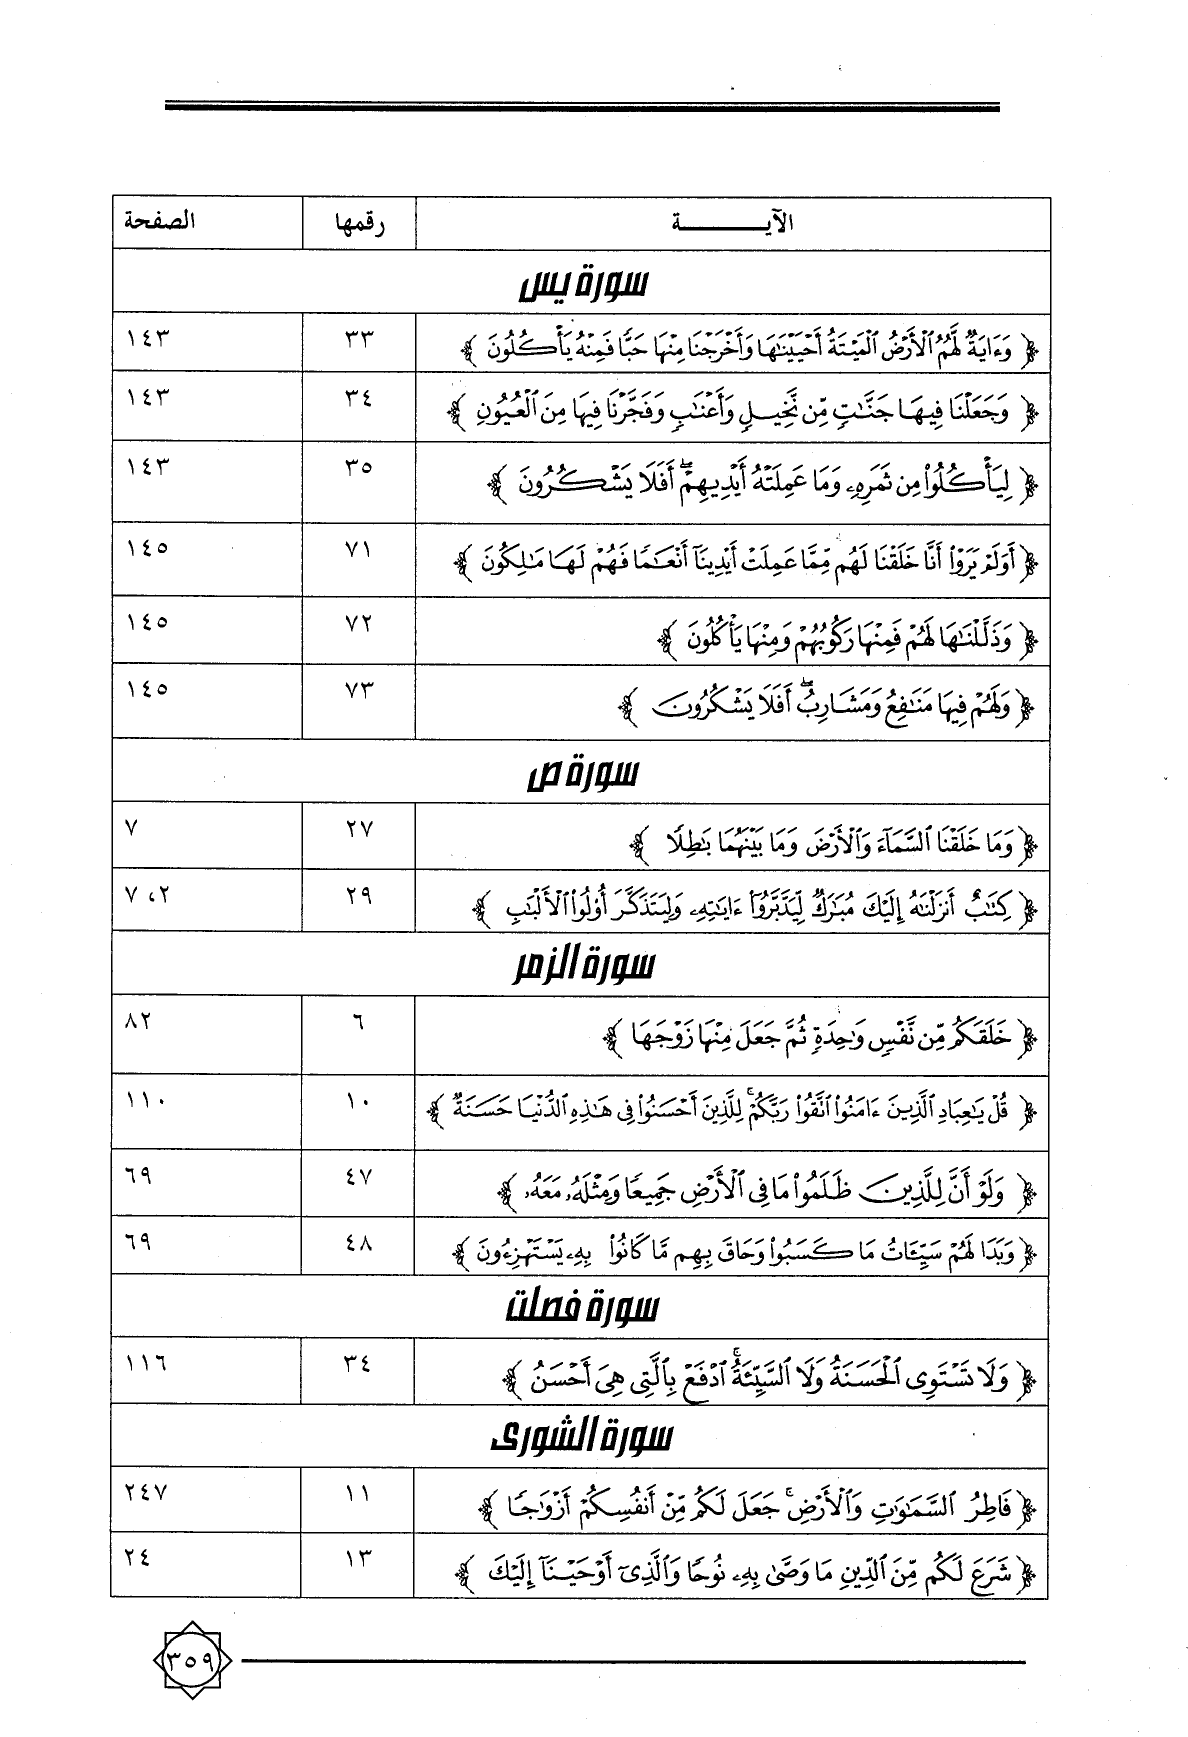 الآيـــــــــة رقمها الصفحة
سورة يس
﴿ وَءَايَةٌ لَّهُمُ ٱلْأَرْضُ ٱلْمَيْتَةُ أَحْيَيْنَٰهَا وَأَخْرَجْنَا مِنْهَا حَبًّا فَمِنْهُ يَأْكُلُونَ ﴾ ٣٣ ١٤٣
﴿ وَجَعَلْنَا فِيهَا جَنَّٰتٍ مِّن نَّخِيلٍ وَأَعْنَٰبٍ وَفَجَّرْنَا فِيهَا مِنَ ٱلْعُيُونِ ﴾ ٣٤ ١٤٣
﴿ لِيَأْكُلُوا۟ مِن ثَمَرِهِۦ وَمَا عَمِلَتْهُ أَيْدِيهِمْ ۖ أَفَلَا يَشْكُرُونَ ﴾ ٣٥ ١٤٣
﴿ أَوَلَمْ يَرَوْا۟ أَنَّا خَلَقْنَا لَهُم مِّمَّا عَمِلَتْ أَيْدِينَآ أَنْعَٰمًا فَهُمْ لَهَا مَٰلِكُونَ ﴾ ٧١ ١٤٥
﴿ وَذَلَّلْنَٰهَا لَهُمْ فَمِنْهَا رَكُوبُهُمْ وَمِنْهَا يَأْكُلُونَ ﴾ ٧٢ ١٤٥
﴿ وَلَهُمْ فِيهَا مَنَٰفِعُ وَمَشَارِبُ ۖ أَفَلَا يَشْكُرُونَ ﴾ ٧٣ ١٤٥
سورة ص
﴿ وَمَا خَلَقْنَا ٱلسَّمَآءَ وَٱلْأَرْضَ وَمَا بَيْنَهُمَا بَٰطِلًا ﴾ ٢٧ ٧
﴿ كِتَٰبٌ أَنزَلْنَٰهُ إِلَيْكَ مُبَٰرَكٌ لِّيَدَّبَّرُوٓا۟ ءَايَٰتِهِۦ وَلِيَتَذَكَّرَ أُو۟لُوا۟ ٱلْأَلْبَٰبِ ﴾ ٢٩ ٢، ٧
سورة الزمر
﴿ خَلَقَكُم مِّن نَّفْسٍ وَٰحِدَةٍ ثُمَّ جَعَلَ مِنْهَا زَوْجَهَا ﴾ ٦ ٨٢
﴿ قُلْ يَٰعِبَادِ ٱلَّذِينَ ءَامَنُوا۟ ٱتَّقُوا۟ رَبَّكُمْ ۚ لِلَّذِينَ أَحْسَنُوا۟ فِى هَٰذِهِ ٱلدُّنْيَا حَسَنَةٌ ﴾ ١٠ ١١٠
﴿ وَلَوْ أَنَّ لِلَّذِينَ ظَلَمُوا۟ مَا فِى ٱلْأَرْضِ جَمِيعًا وَمِثْلَهُۥ مَعَهُۥ ﴾ ٤٧ ٦٩
﴿ وَبَدَا لَهُمْ سَيِّـَٔاتُ مَا كَسَبُوا۟ وَحَاقَ بِهِم مَّا كَانُوا۟ بِهِۦ يَسْتَهْزِءُونَ ﴾ ٤٨ ٦٩
سورة فصلت
﴿ وَلَا تَسْتَوِى ٱلْحَسَنَةُ وَلَا ٱلسَّيِّئَةُ ۚ ٱدْفَعْ بِٱلَّتِى هِىَ أَحْسَنُ ﴾ ٣٤ ١١٦
سورة الشورى
﴿ فَاطِرُ ٱلسَّمَٰوَٰتِ وَٱلْأَرْضِ ۚ جَعَلَ لَكُم مِّنْ أَنفُسِكُمْ أَزْوَٰجًا ﴾ ١١ ٢٤٧
﴿ شَرَعَ لَكُم مِّنَ ٱلدِّينِ مَا وَصَّىٰ بِهِۦ نُوحًا وَٱلَّذِىٓ أَوْحَيْنَآ إِلَيْكَ ﴾ ١٣ ٢٤
٣٥٩